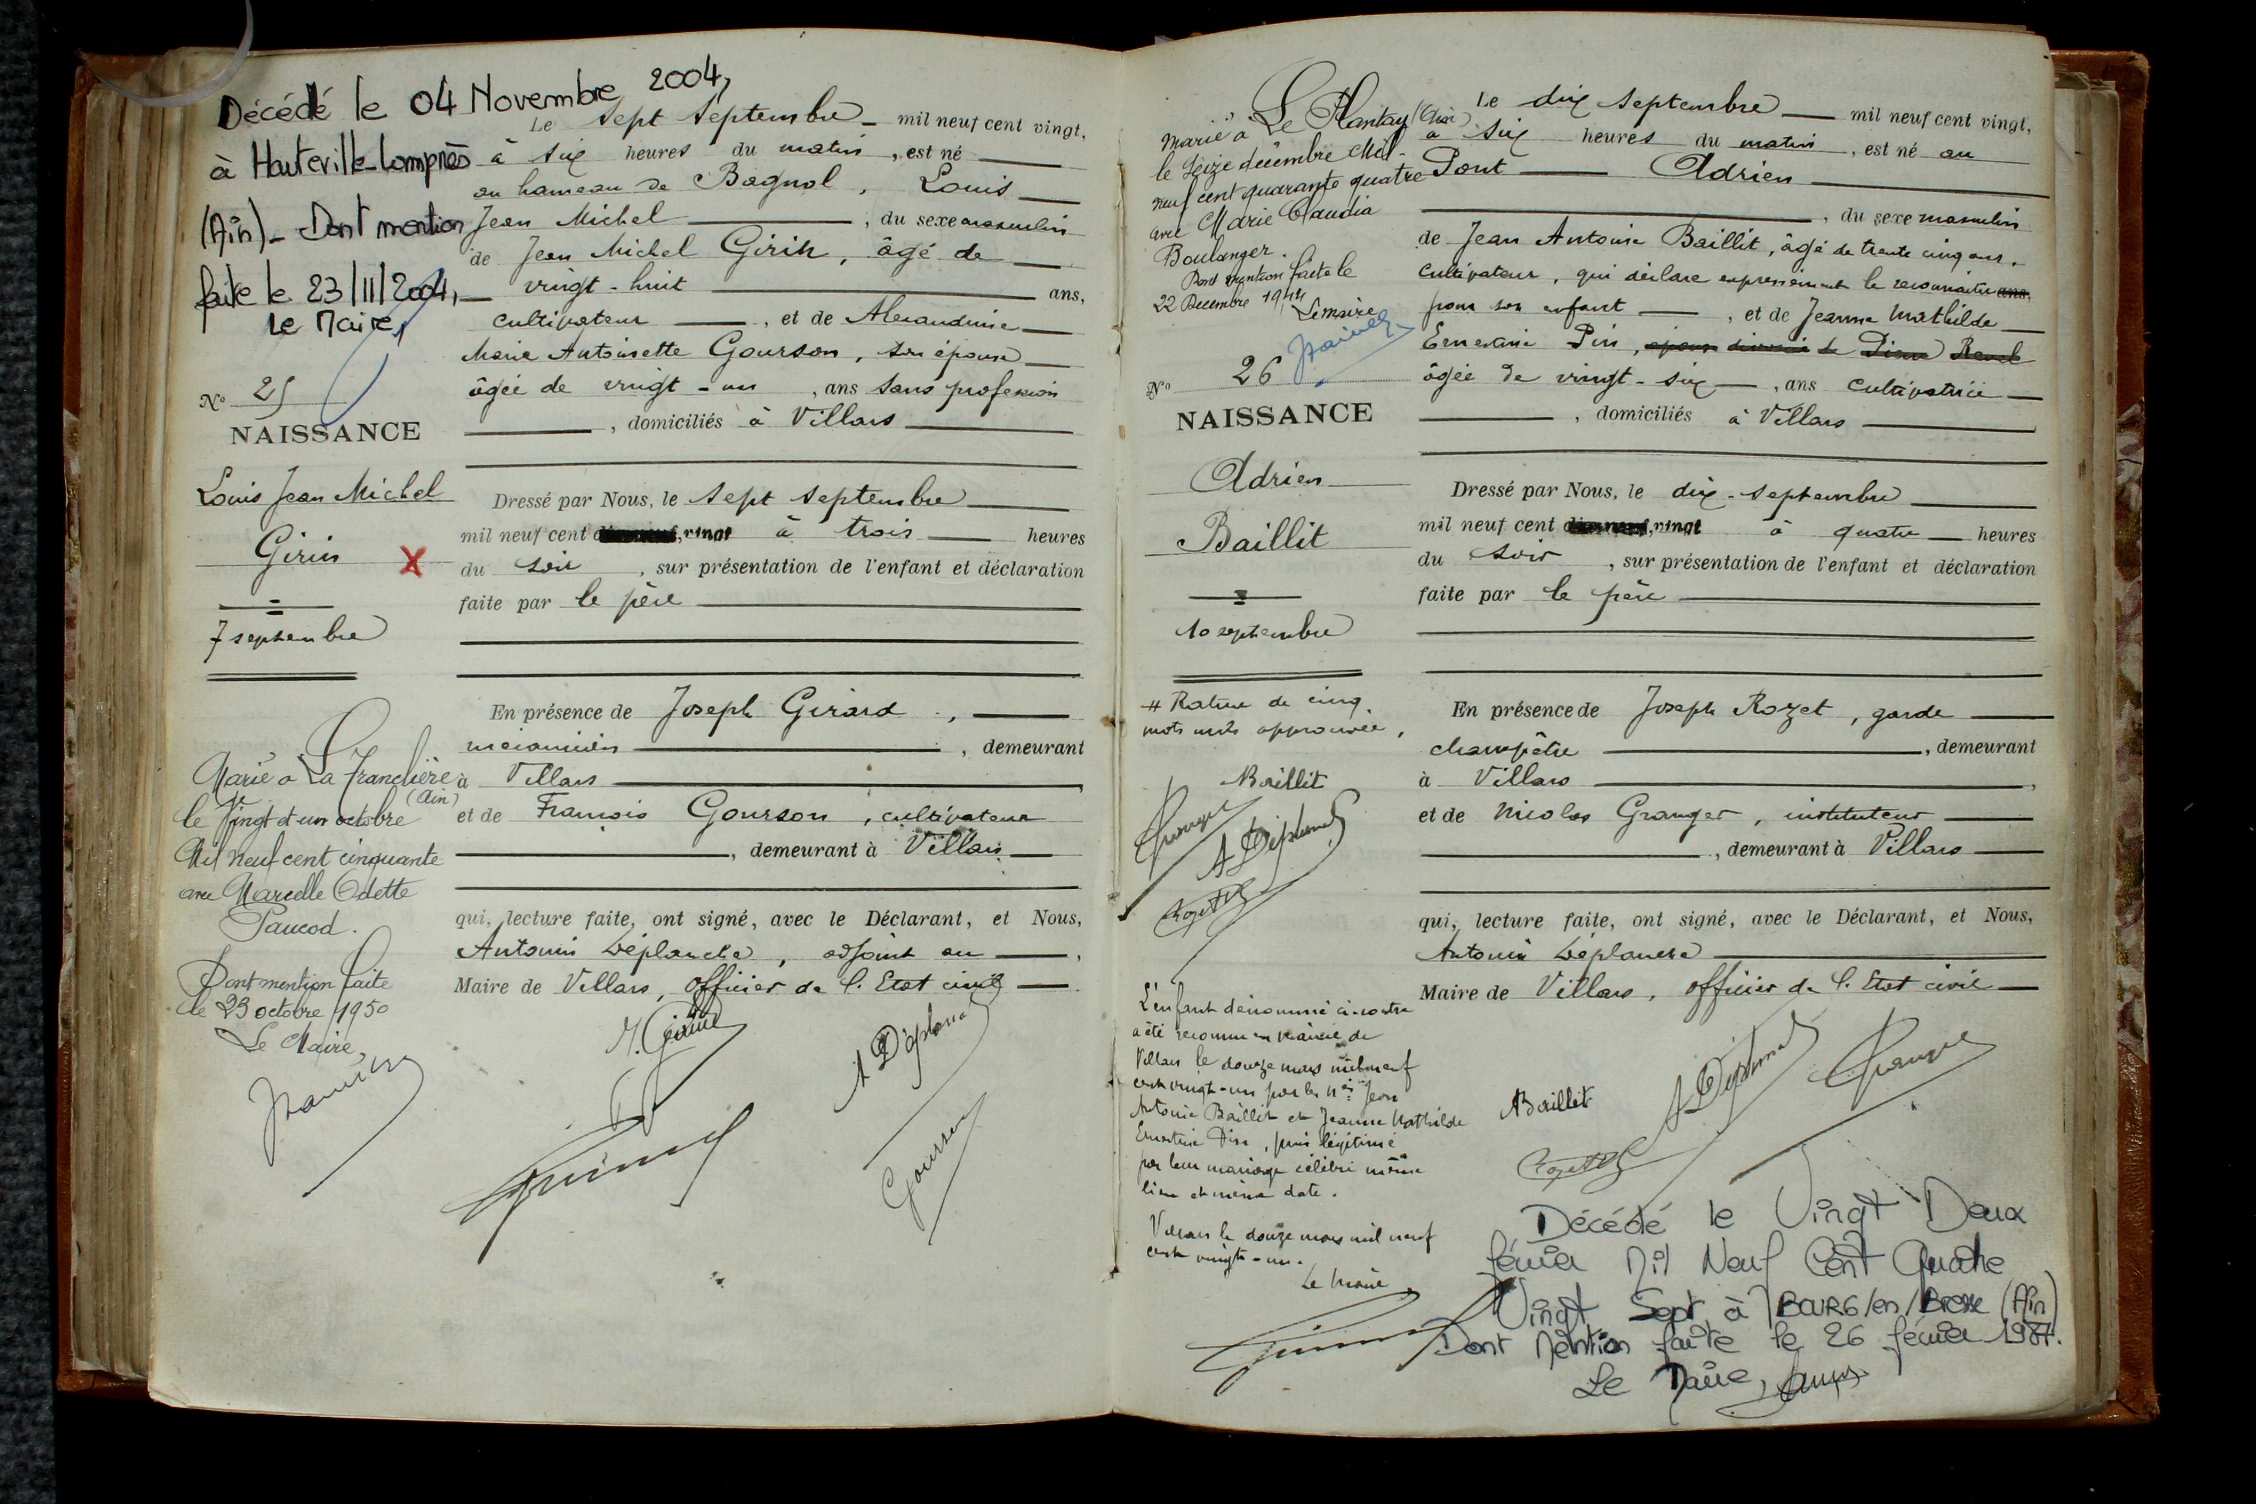 Décédé le 04 Novembre 2004,
à Hauteville-Lompnès
(Ain) - Dont mention
faite le 23/11/2004,
Le Maire,
N° 25
NAISSANCE
Louis Jean Michel
Girin
X
7 septembre
Marié à La Tranclière
(Ain)
le Vingt et un octobre
Mil neuf cent cinquante
avec Marcelle Odette
Paucod.
Dont mention faite
le 23 octobre 1950
Le Maire,
Le sept septembre mil neuf cent vingt,
à six heures du matin, est né
au hameau de Bagnol, Louis
Jean Michel, du sexe masculin
de Jean Michel Girin, âgé de
vingt-huit ans,
cultivateur, et de Alexandrine
Marie Antoinette Gourson, son épouse
âgée de vingt-un, ans sans profession
, domiciliés à Villars
Dressé par Nous, le sept septembre
mil neuf cent vingt à trois heures
du soir, sur présentation de l'enfant et déclaration
faite par le père
En présence de Joseph Girard,
mécanicien, demeurant
à Villars
et de François Gourson, cultivateur
, demeurant à Villars
qui, lecture faite, ont signé, avec le Déclarant, et Nous,
Antonin Déplanche, adjoint au
Maire de Villars, officier de l'Etat civil
Gourson
Marié à Le Plantay (Ain)
le Seize décembre Mil
neuf cent quarante quatre
avec Marie Claudia
Boulanger.
Dont mention faite le
22 Décembre 1944
Le maire
N° 26
NAISSANCE
Adrien
Baillit
10 septembre
# Rature de cinq
mots nuls approuvée,
Baillit
L'enfant dénommé ci-contre
a été reconnu en mairie de
Villars le douze mars mil neuf
cent vingt-un par les nés Jean
Antoine Baillit et Jeanne Mathilde
Ernestine Pin, puis légitimé
par leur mariage célébré même
lieu et même date.
Villars le douze mars mil neuf
cent vingt-un.
Le Maire
Le dix septembre mil neuf cent vingt,
à six heures du matin, est né au
Pont Adrien
, du sexe masculin
de Jean Antoine Baillit, âgé de trente cinq ans,
cultivateur, qui déclare expressément le reconnaître ans,
pour son enfant, et de Jeanne Mathilde
Ernestine Pin,
âgée de vingt-six, ans cultivatrice
, domiciliés à Villars
Dressé par Nous, le dix-septembre
mil neuf cent vingt à quatre heures
du soir, sur présentation de l'enfant et déclaration
faite par le père
En présence de Joseph Rozet, garde
champêtre, demeurant
à Villars
et de Nicolas Granger, instituteur
, demeurant à Villars
qui, lecture faite, ont signé, avec le Déclarant, et Nous,
Antonin Déplanche
Maire de Villars, officier de l'Etat civil
Baillit
Décédé le Vingt Deux
février Mil Neuf Cent Quatre
Vingt Sept à BOURG/en/Bresse (Ain)
Dont Mention faite le 26 février 1987.
Le Maire,